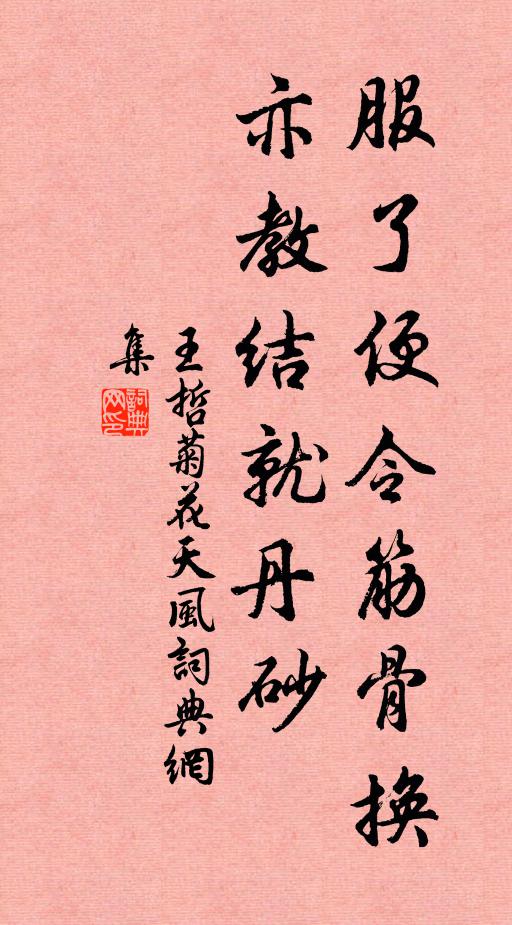 服了便令筋骨換
亦教結就丹砂
王哲菊花天風詞典網
集
詞典网印